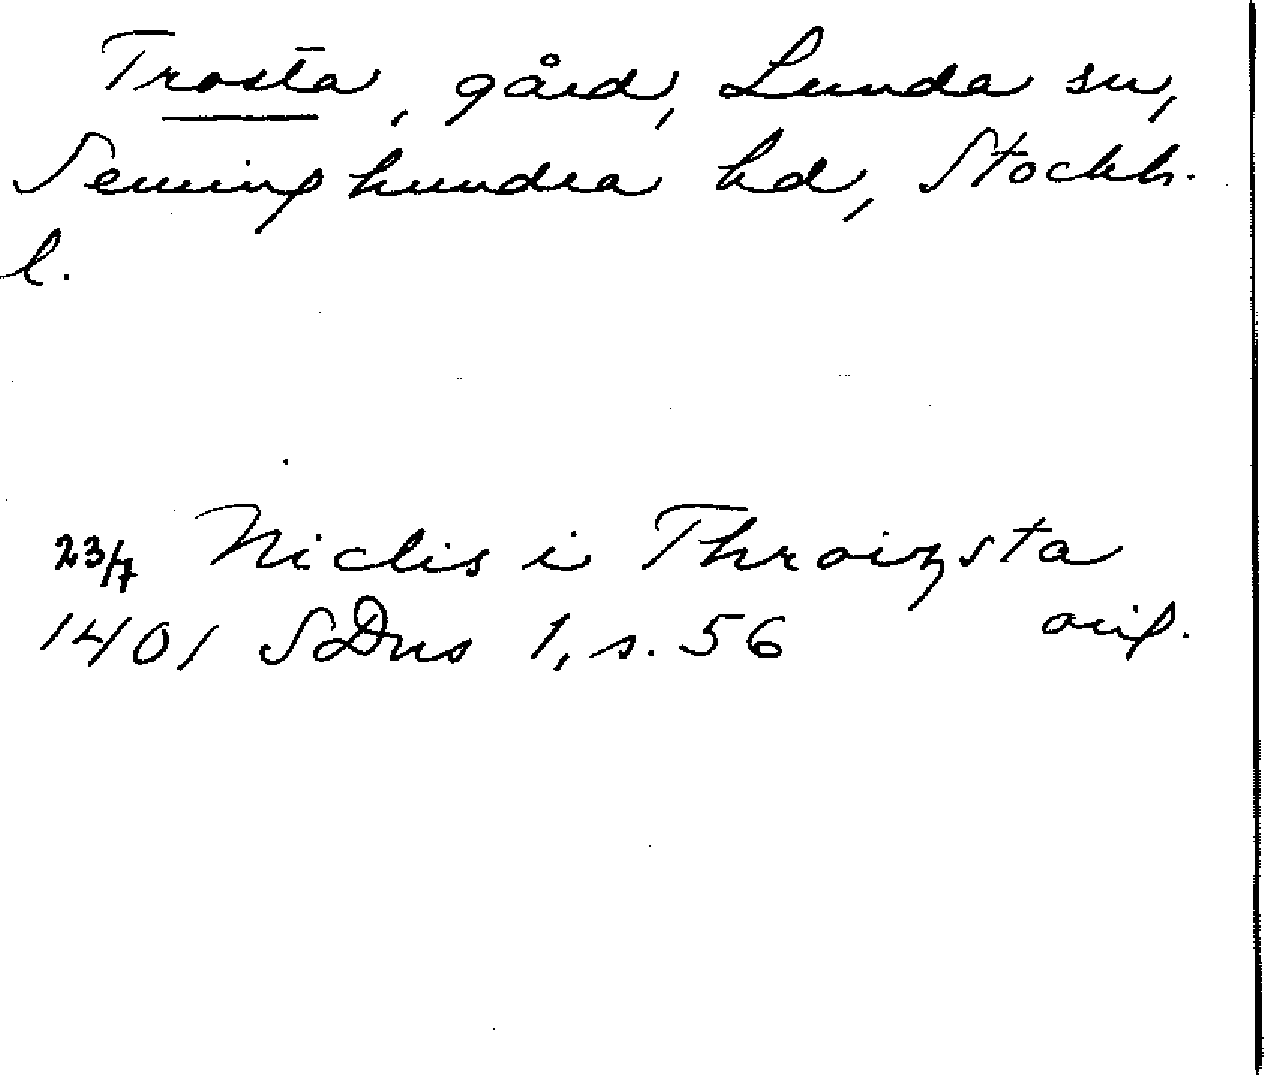 Trosta, gård, Lunda sn,
Seminghundra hd, Stockh.
l.
23/7 Niclis i Throizsta
1401 SDns 1, s. 56 orig.